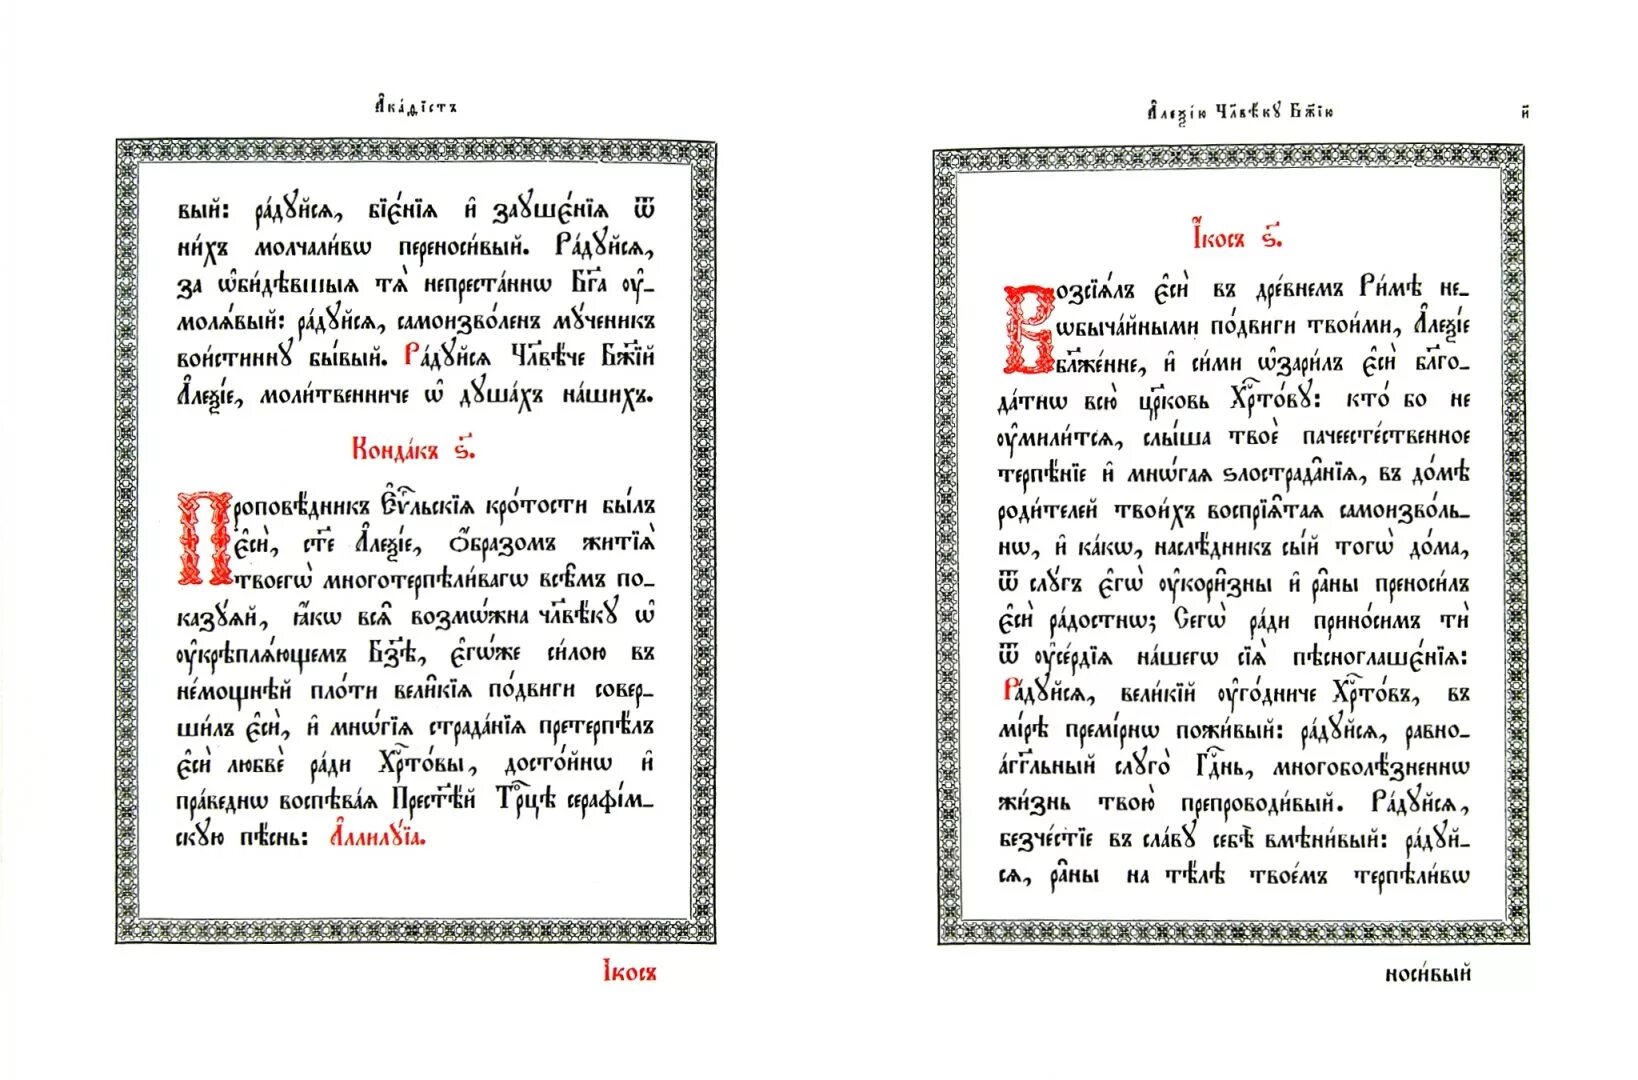 А҆ка́ѳїстъ
вый: ра́дꙋйсѧ, бїє́нїѧ и҆ заꙋше́нїѧ ѿ
ни́хъ молчали́вѡ переноси́вый. Ра́дꙋйсѧ,
за ѡ҆би́дѣвшыѧ тѧ̀ непреста́ннѡ Бг҃а ᲂу҆-
молѧ́вый: ра́дꙋйсѧ, самоизво́ленъ мꙋ́ченикъ
вои́стиннꙋ бы́вый. Ра́дꙋйсѧ Чл҃вѣ́че Бж҃їй
А҆леѯі́е, моли́твенниче ѡ҆ дꙋша́хъ на́шихъ.
Конда́къ ѕ҃.
Проповѣ́дникъ Є҆ѵⷢ҇льскїѧ кро́тости бы́лъ
є҆сѝ, ст҃е А҆леѯі́е, Ѻ҆́бразомъ житїѧ̀
твоегѡ̀ многотерпѣли́вагѡ всѣ̑мъ по-
казꙋ́ѧй, ꙗ҆́кѡ всѧ̑ возмѡ́жна чл҃вѣ́кꙋ ѡ҆
ᲂу҆крѣплѧ́ющемъ Бз҃ѣ, є҆гѡ́же си́лою въ
не́мощнѣй пло́ти вели̑кїѧ по́двиги совер-
ши́лъ є҆сѝ, и҆ мнѡ́гїѧ страда̑нїѧ претерпѣ́лъ
є҆сѝ любвѐ ра́ди Хрⷭ҇то́вы, досто́йнѡ и҆
пра́веднѡ воспѣва́ѧ Прест҃ѣ́й Трⷪ҇цѣ серафі́м-
скꙋю пѣ́снь: А҆ллилꙋ́їа.
І҆́косъ
А҆леѯі́ю Чл҃вѣ́кꙋ Бж҃їю
и҃
І҆́косъ ѕ҃.
Возсїѧ́лъ є҆сѝ въ дре́внемъ Ри́мѣ не-
ѡбыча́йными по́двиги твои́ми, А҆леѯі́е
бл҃же́нне, и҆ си́ми ѡ҆зари́лъ є҆сѝ блг҃о-
да́тнѡ всю̀ цр҃ковь Хрⷭ҇то́вꙋ: кто́ бо не
ᲂу҆мили́тсѧ, слы́ша твоѐ пачеесте́ственное
терпѣ́нїе и҆ мнѡ́гаѧ ѕлострада̑нїѧ, въ до́мѣ
роди́телей твои́хъ воспрїѧ̑таѧ самоизво́ль-
нѡ, и҆ ка́кѡ, наслѣ́дникъ сы́й тогѡ̀ до́ма,
ѿ слꙋ́гъ є҆гѡ̀ ᲂу҆кори̑зны и҆ ра̑ны преноси́лъ
є҆сѝ ра́достнѡ; Сегѡ̀ ра́ди прино́симъ тѝ
ѿ ᲂу҆се́рдїѧ на́шегѡ сїѧ̀ пѣсноглаше́нїѧ:
Ра́дꙋйсѧ, вели́кїй ᲂу҆го́дниче Хрⷭ҇то́въ, въ
мі́рѣ преми́рнѡ пожи́вый: ра́дꙋйсѧ, равно-
а́гг҃льный слꙋго̀ Гдⷭ҇нь, многоболѣ́зненнѡ
жи́знь твою̀ препроводи́вый. Ра́дꙋйсѧ,
безче́стїе въ сла́вꙋ себѣ̀ вмѣни́вый: ра́дꙋй-
сѧ, ра̑ны на тѣ́лѣ твое́мъ терпѣли́вѡ
носи́вый